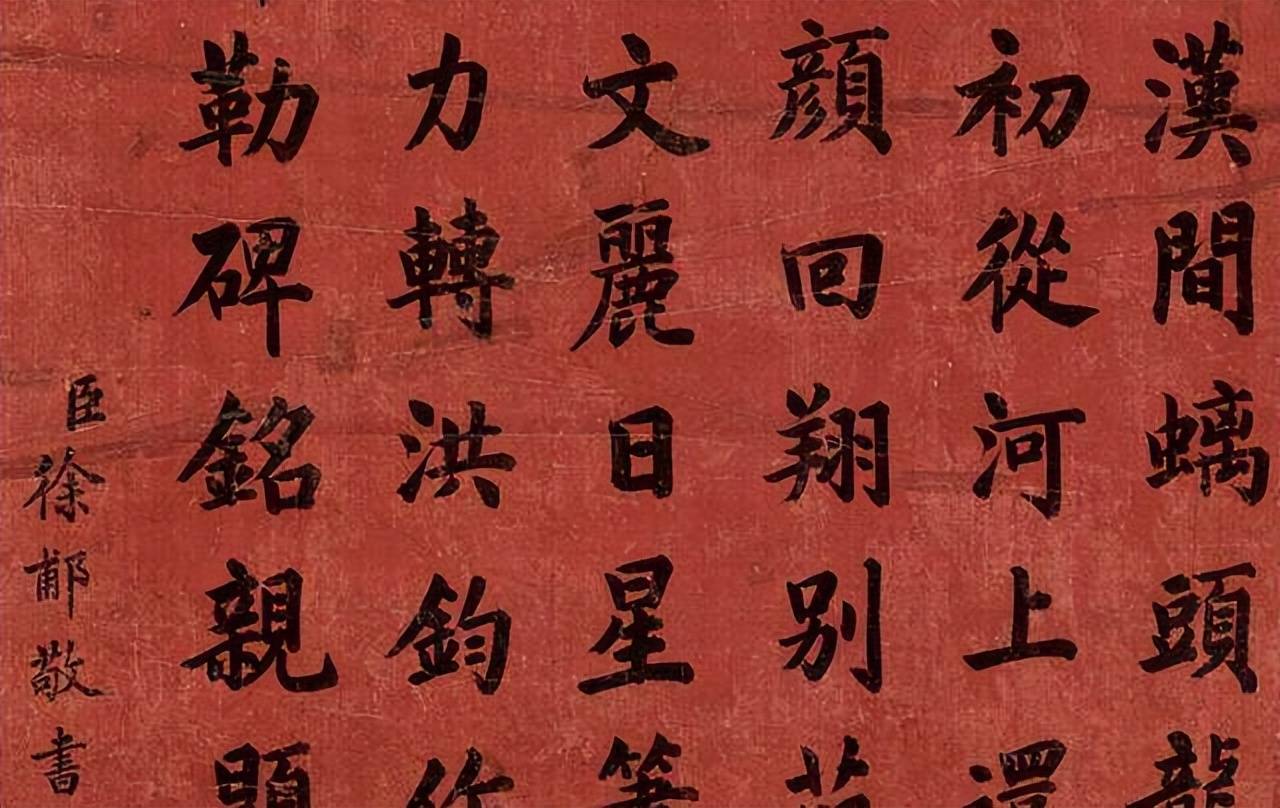 漢間螭頭龍
初從河上還
顔回翔别
文麗日星
力轉洪鈞
勒碑銘親題
臣徐郙敬書